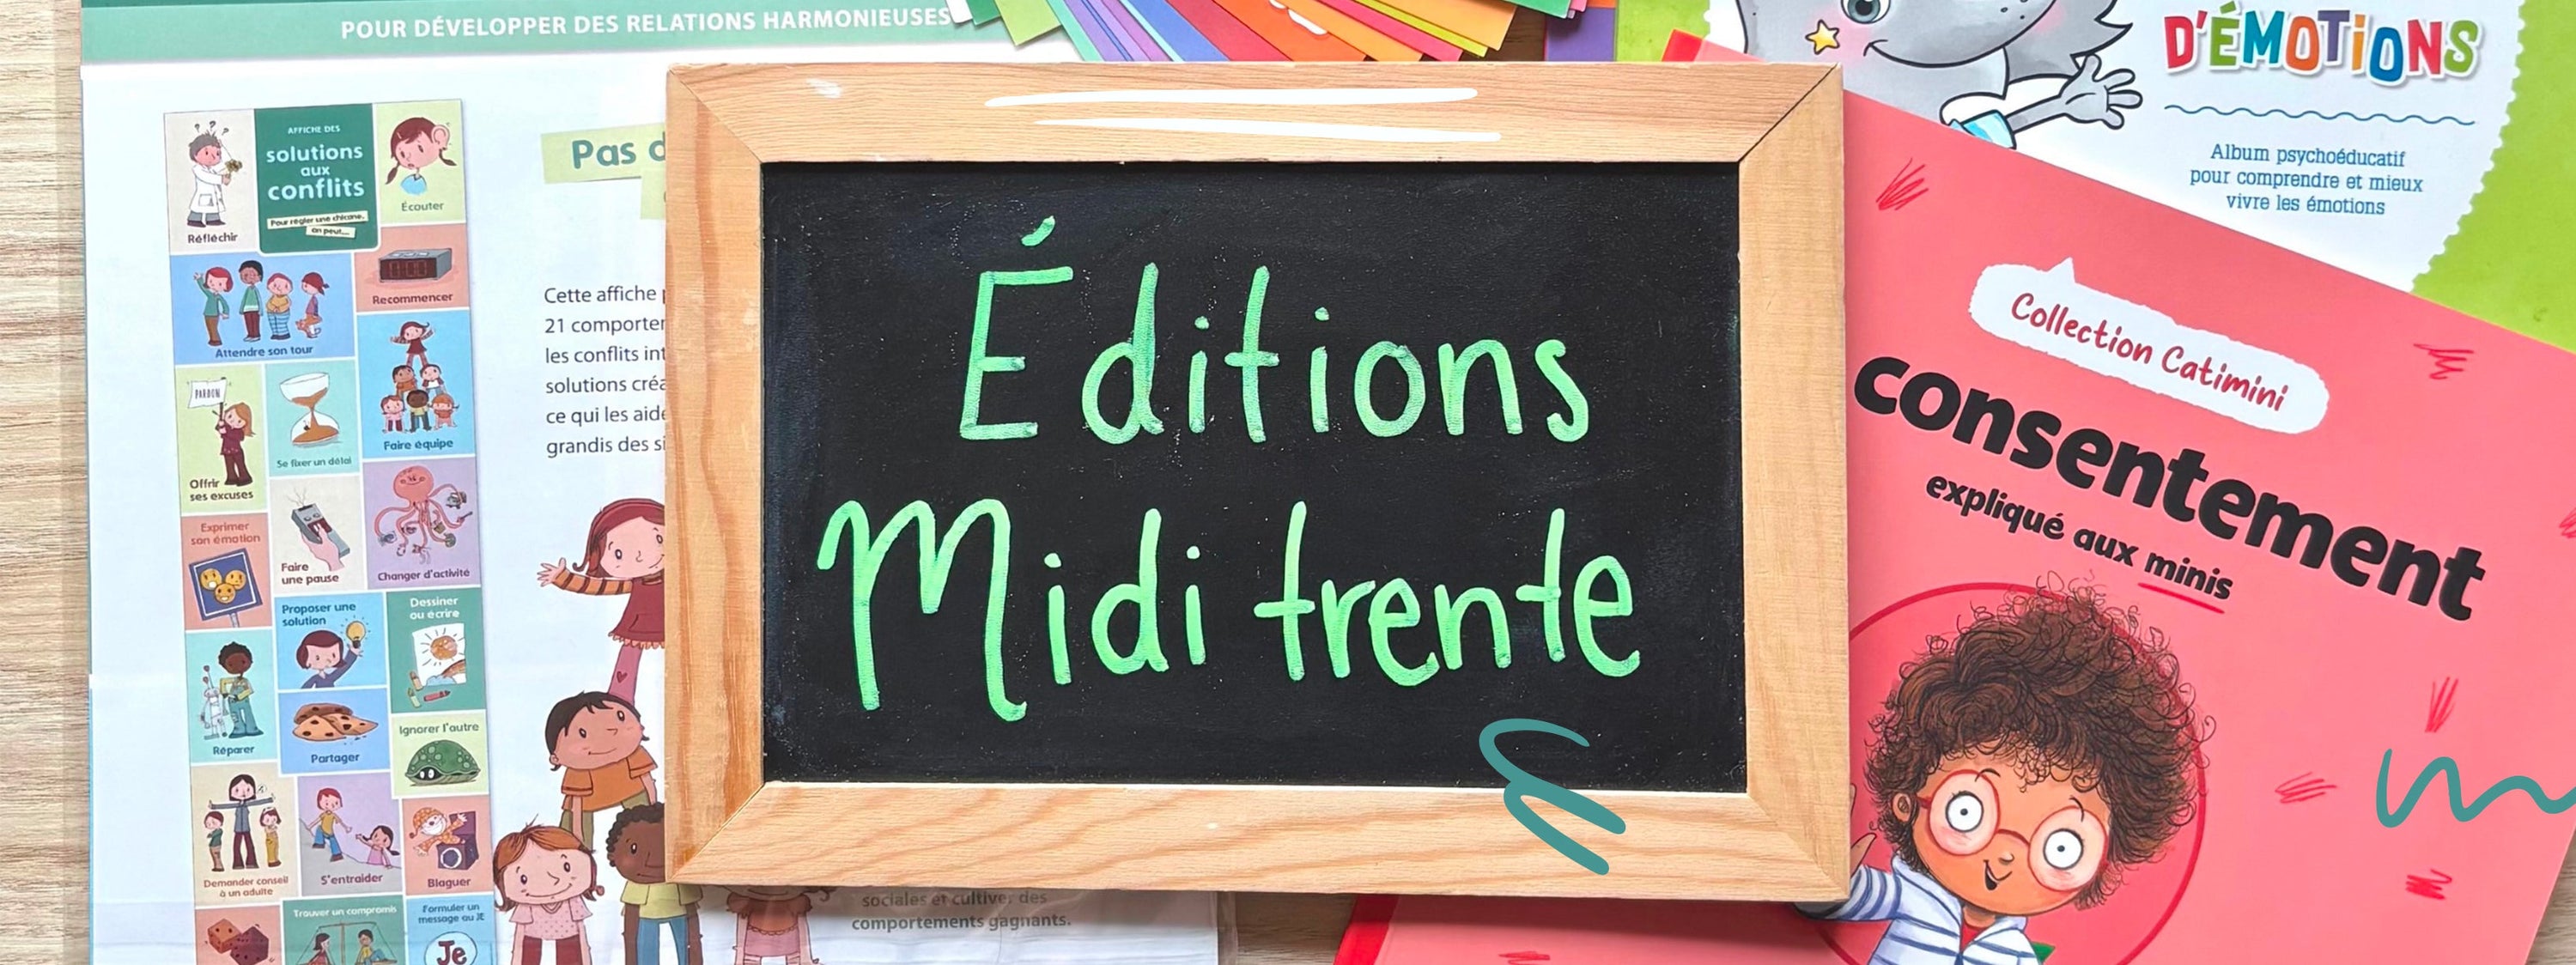 POUR DÉVELOPPER DES RELATIONS HARMONIEUSES
AFFICHE DES
solutions
aux
conflits
Pour régler une chicane,
on peut...
Réfléchir
Écouter
Attendre son tour
Recommencer
PARDON
Offrir
ses excuses
Se fixer un délai
Faire équipe
Exprimer
son émotion
Faire
une pause
Changer d'activité
Proposer une
solution
Dessiner
ou écrire
Réparer
Partager
Ignorer l'autre
Demander conseil
à un adulte
S'entraider
Blaguer
Trouver un compromis
Formuler un
message au JE
Je
Pas d
Cette affiche
21 comporte
les conflits
solutions
ce qui les
grandis des
sociales et cultiver des
comportements gagnants.
Éditions
Midi trente
D'ÉMOTIONS
Album psychoéducatif
pour comprendre et mieux
vivre les émotions
Collection Catimini
consentement
expliqué aux minis